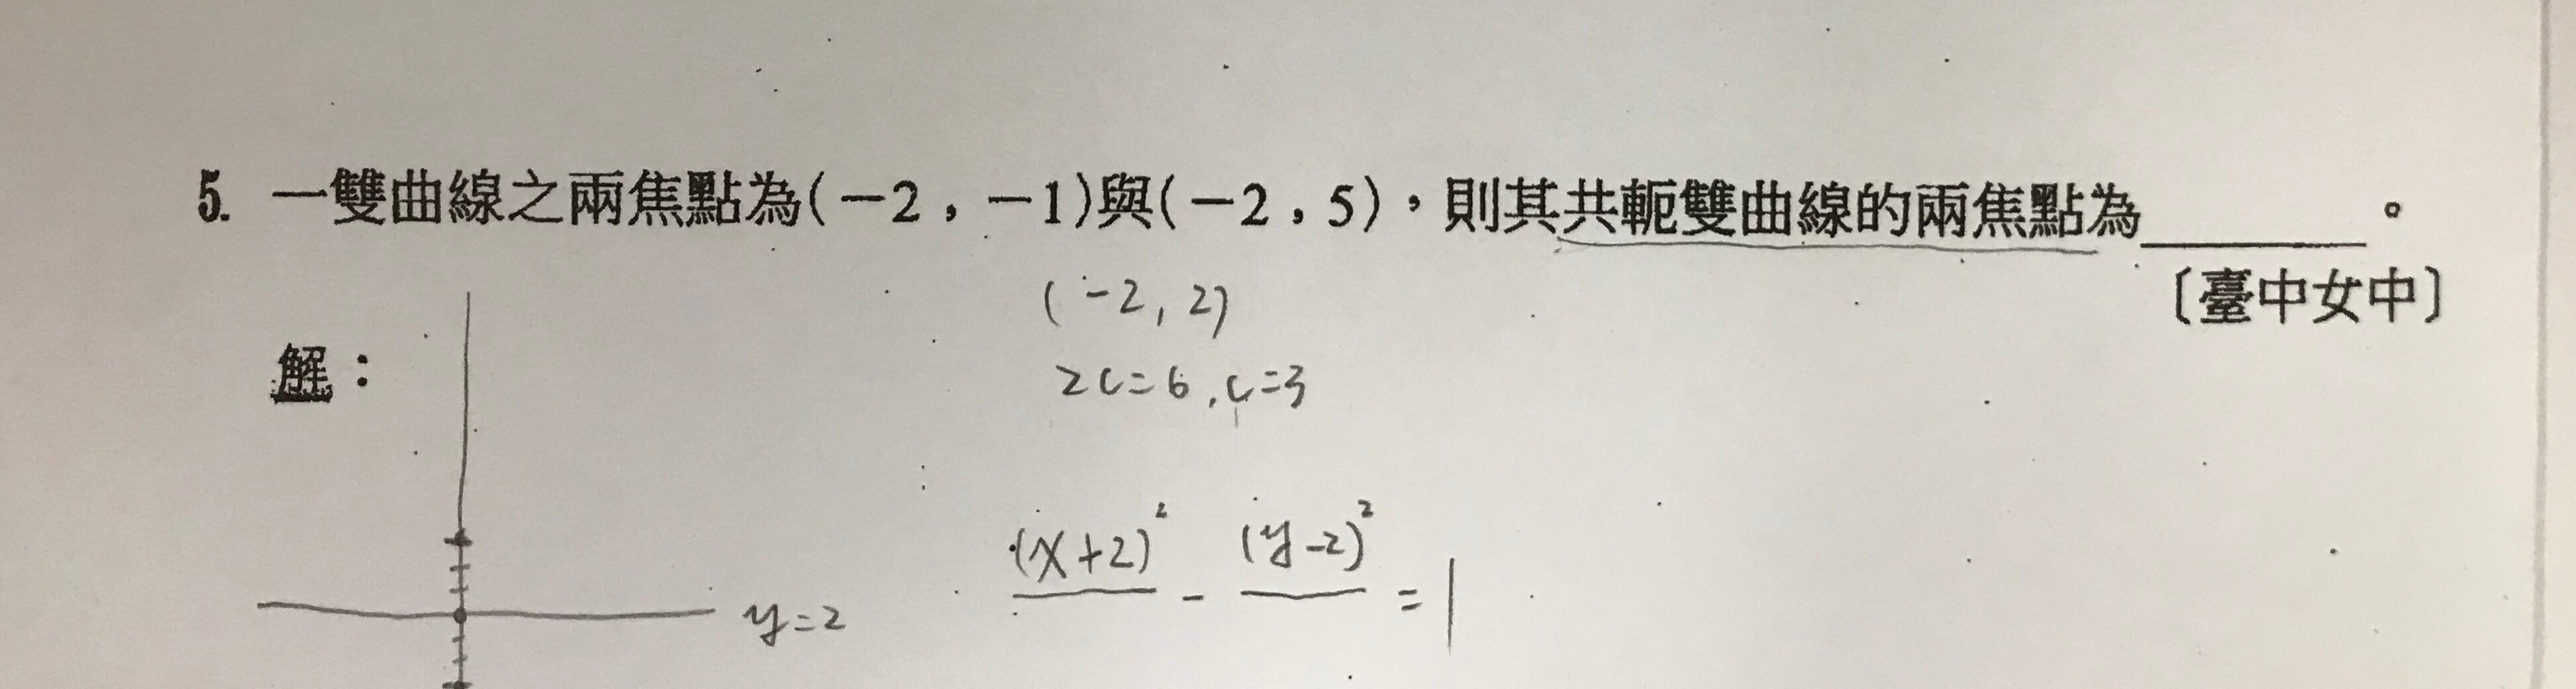 5. 一雙曲線之兩焦點為(-2,-1)與(-2,5),則其共軛雙曲線的兩焦點為______。
〔臺中女中〕
(-2,2)
解:
2c=6,c=3
(x+2)² / - (y-2)² / = 1
y=2